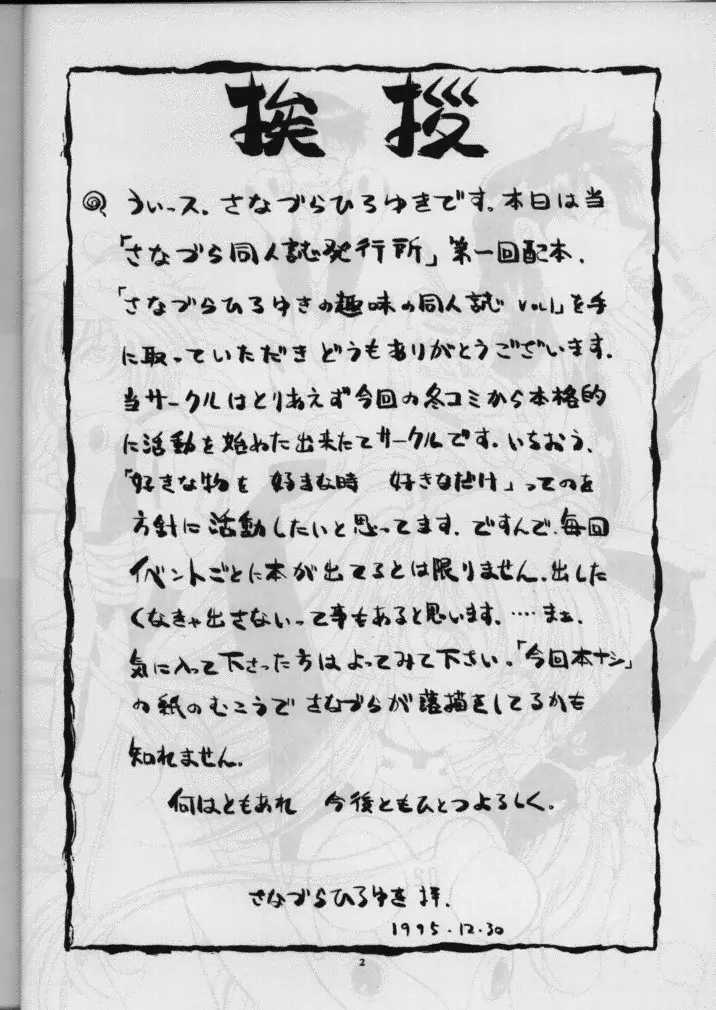 挨拶
うぃース. さなづらひろゆきです. 本日は当
「さなづら同人誌発行所」第一回配本.
「さなづらひろゆきの趣味の同人誌 Vol.1」を手
に取っていただき どうもありがとうございます.
当サークルはとりあえず今回の冬コミから本格的
に活動を始めた出来たてサークルです. いちおう.
「好きな物を 好きな時 好きなだけ」ってのを
方針に活動したいと思ってます. ですんで. 毎回
イベントごとに本が出てるとは限りません. 出した
くなきゃ出さないって事もあると思います. …. まぁ.
気に入って下さった方はよってみて下さい. 「今回本ナシ」
の紙のむこうで さなづらが落描きしてるかも
知れません.
何はともあれ 今後ともひとつよろしく.
さなづらひろゆき 拝.
1995.12.30
2